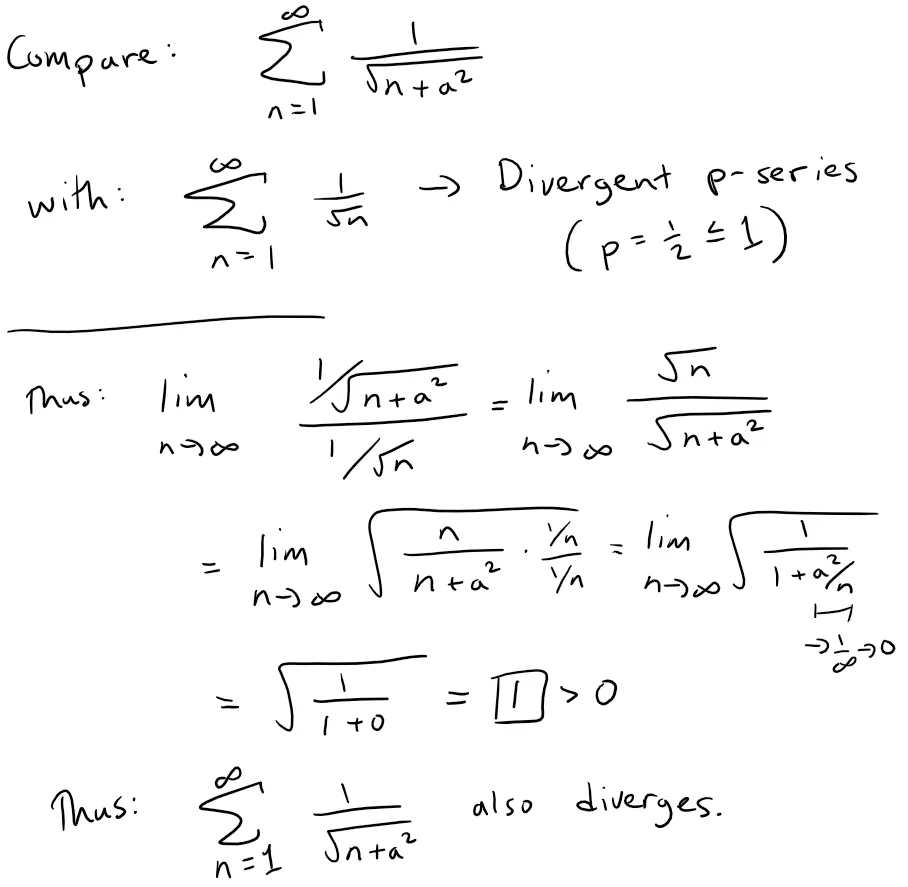 Compare: ∑_{n=1}^{∞} 1/√(n+a²)
with: ∑_{n=1}^{∞} 1/√n → Divergent p-series
(p = 1/2 ≤ 1)
Thus: lim_{n→∞} (1/√(n+a²))/(1/√n) = lim_{n→∞} √n/√(n+a²)
= lim_{n→∞} √(n/(n+a²) · (1/n)/(1/n)) = lim_{n→∞} √(1/(1+a²/n))
→ 1/∞ → 0
= √(1/(1+0)) = 1 > 0
Thus: ∑_{n=1}^{∞} 1/√(n+a²) also diverges.